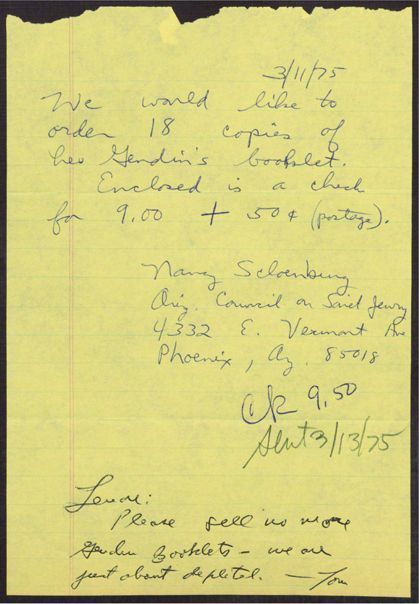 3/11/75
We would like to
order 18 copies of
Leo Gendin's booklet.
Enclosed is a check
for 9.00 + 50¢ (postage).
Nancy Schoenburg
Ariz. Council on Soviet Jewry
4332 E. Vermont Ave
Phoenix, Az. 85018
CK 9.50
Sent 3/13/75
Lenore:
Please sell no more
Gendin Booklets – we are
just about depleted. – Tom